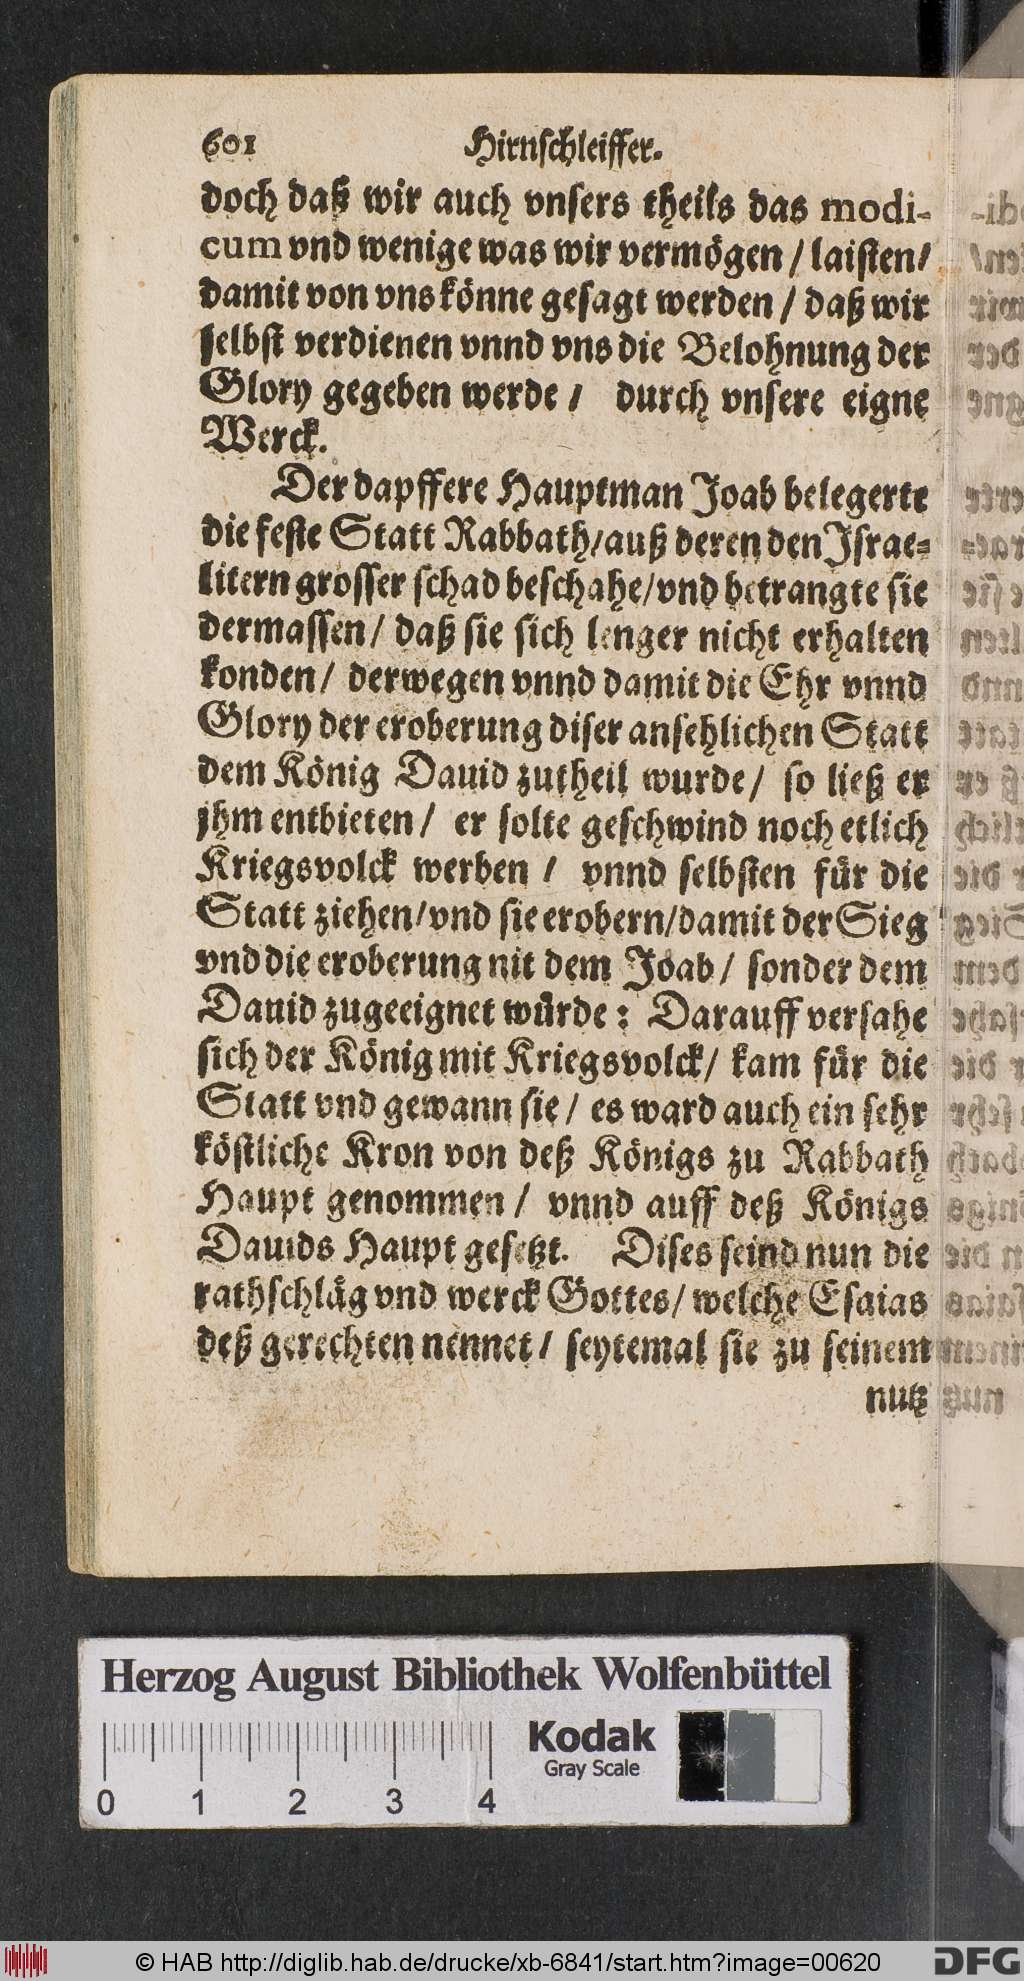 601 Hirnschleiffer.
doch daß wir auch vnsers theils das modi-
cum vnd wenige was wir vermögen / laisten/
damit von vns könne gesagt werden / daß wir
selbst verdienen vnnd vns die Belohnung der
Glory gegeben werde / durch vnsere eigne
Werck.
Der dapffere Hauptman Joab belegerte
die feste Statt Rabbath/auß deren den Israe-
litern grosser schad beschahe/vnd betrangte sie
dermassen/ daß sie sich lenger nicht erhalten
konden/ derwegen vnnd damit die Ehr vnnd
Glory der eroberung diser ansehlichen Statt
dem König Dauid zutheil wurde/ so ließ er
jhm entbieten/ er solte geschwind noch etlich
Kriegsvolck werben / vnnd selbsten für die
Statt ziehen/vnd sie erobern/damit der Sieg
vnd die eroberung nit dem Joab/ sonder dem
Dauid zugeeignet würde: Darauff versahe
sich der König mit Kriegsvolck/ kam für die
Statt vnd gewann sie/ es ward auch ein sehr
köstliche Kron von deß Königs zu Rabbath
Haupt genommen/ vnnd auff deß Königs
Dauids Haupt gesetzt. Dises seind nun die
rathschläg vnd werck Gottes/ welche Esaias
deß gerechten nennet/ seytemal sie zu seinem
nutz
Herzog August Bibliothek Wolfenbüttel
Kodak
Gray Scale
0 1 2 3 4
© HAB http://diglib.hab.de/drucke/xb-6841/start.htm?image=00620
DFG